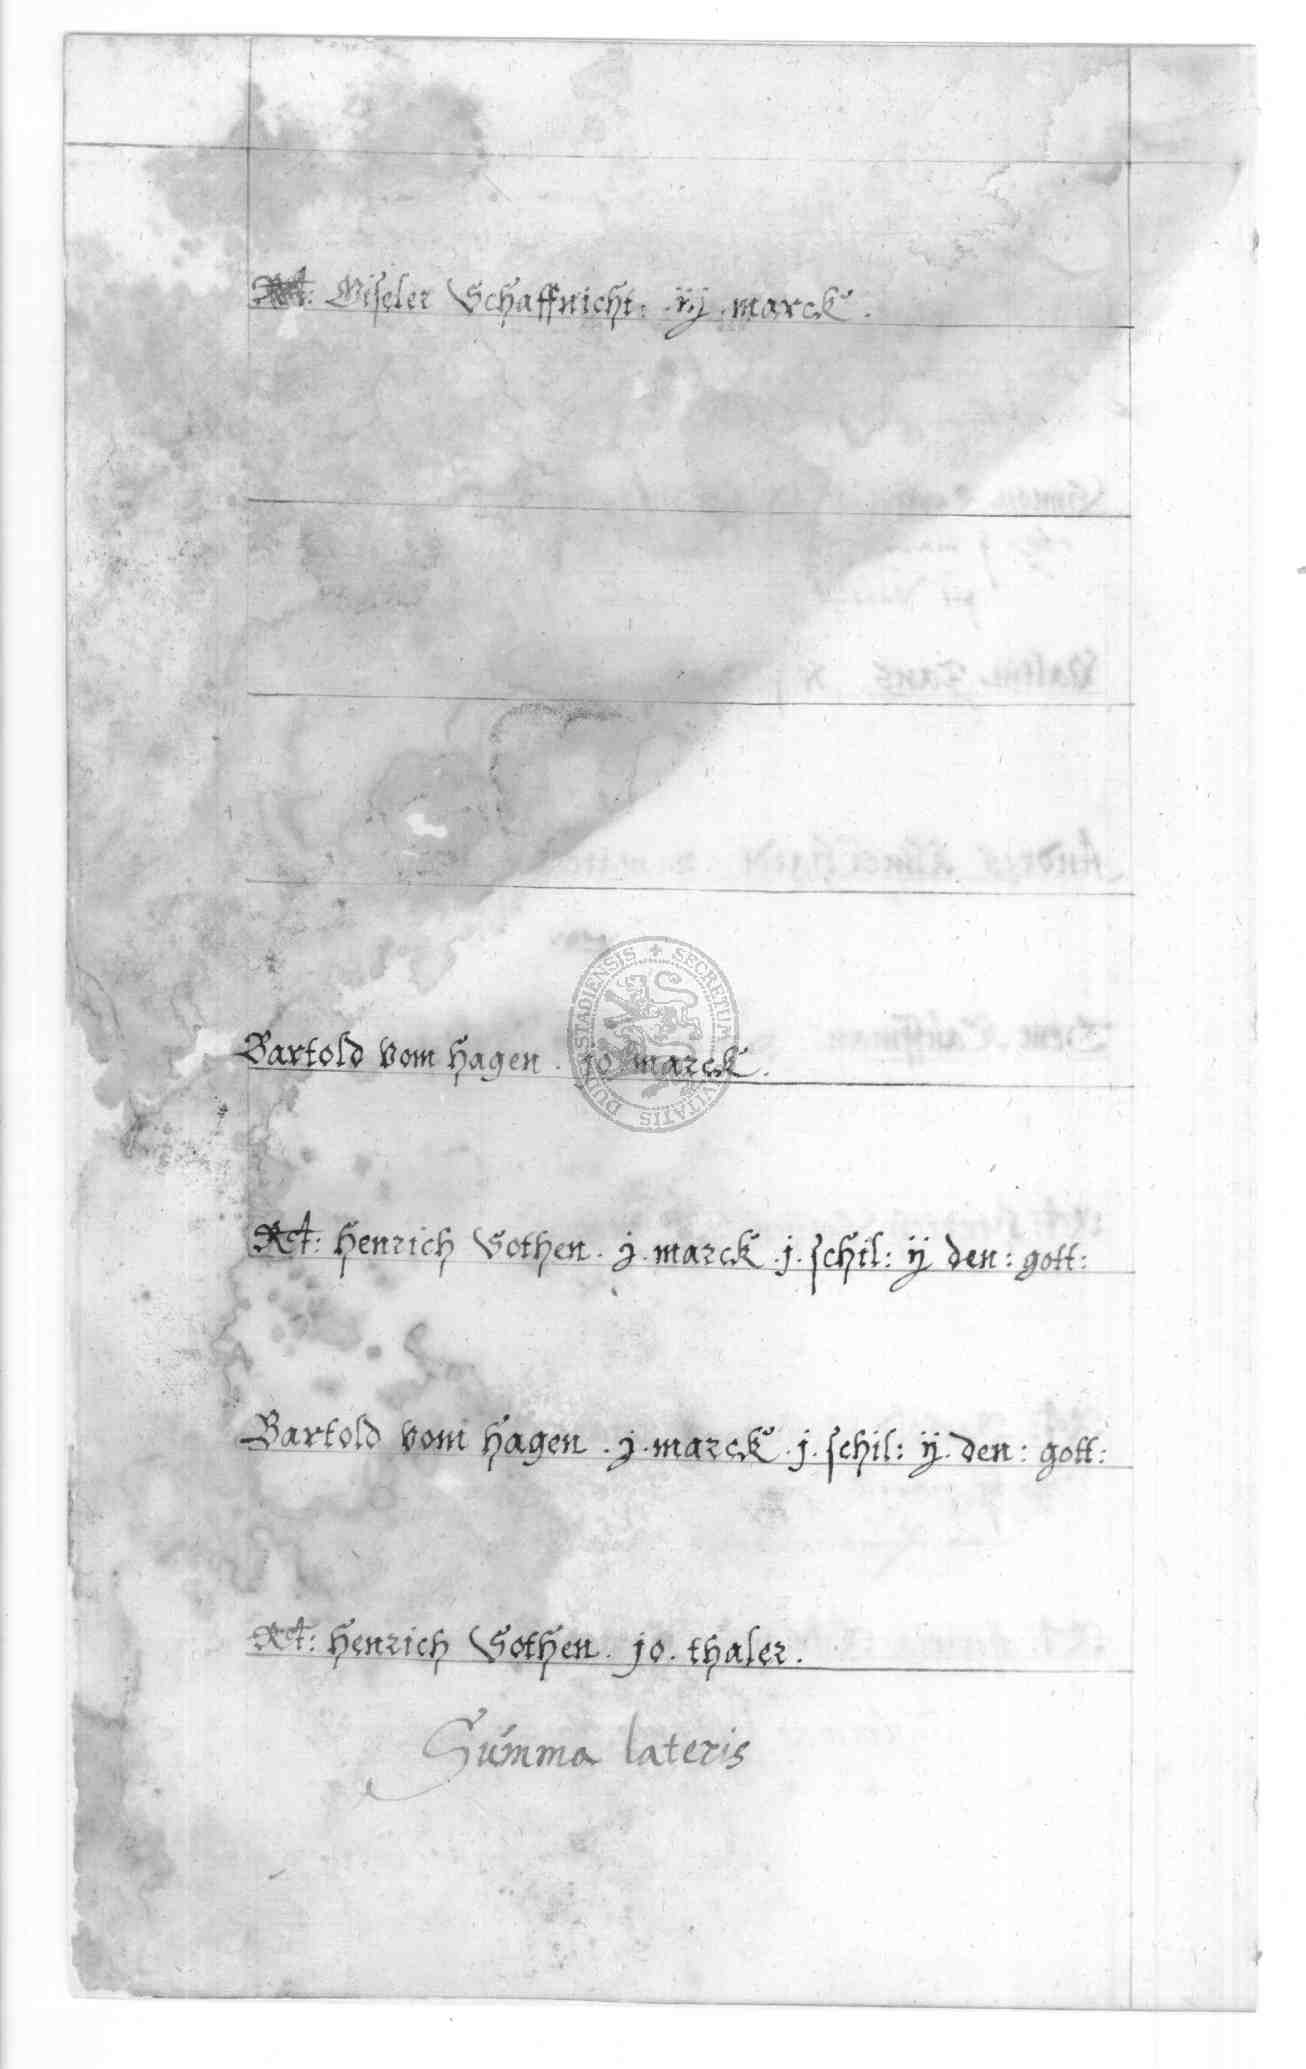 Rt: Giseler Schaffnicht: iij marck.
Bartold vom Hagen. jo marck.
Rt: Henrich Vothen. j. marck. j. schil: ij den: gott:
Bartold vom Hagen. j. marck. j. schil: ij. den: gott:
Rt: Henrich Vothen. jo. thaler.
Summa lateris